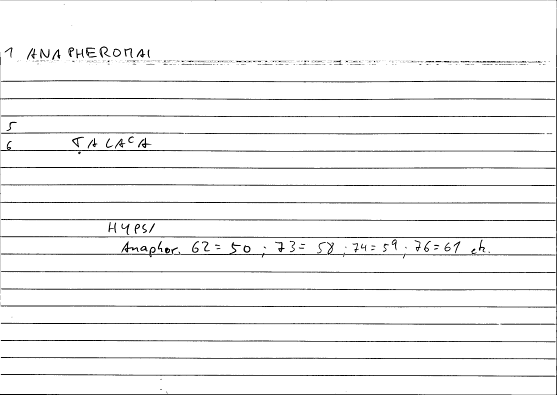 1 ANAPHEROMAI
5
6 TALACA
HYPSI
Anaphor. 62 = 50 ; 73 = 58 ; 74 = 59 ; 76 = 61 ch.